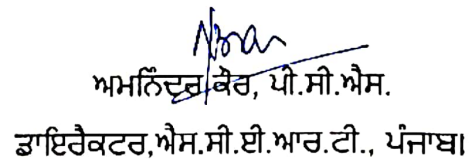 ਅਮਨਿੰਦਰ ਕੌਰ, ਪੀ.ਸੀ.ਐਸ.
ਡਾਇਰੈਕਟਰ,ਐਸ.ਸੀ.ਈ.ਆਰ.ਟੀ., ਪੰਜਾਬ।